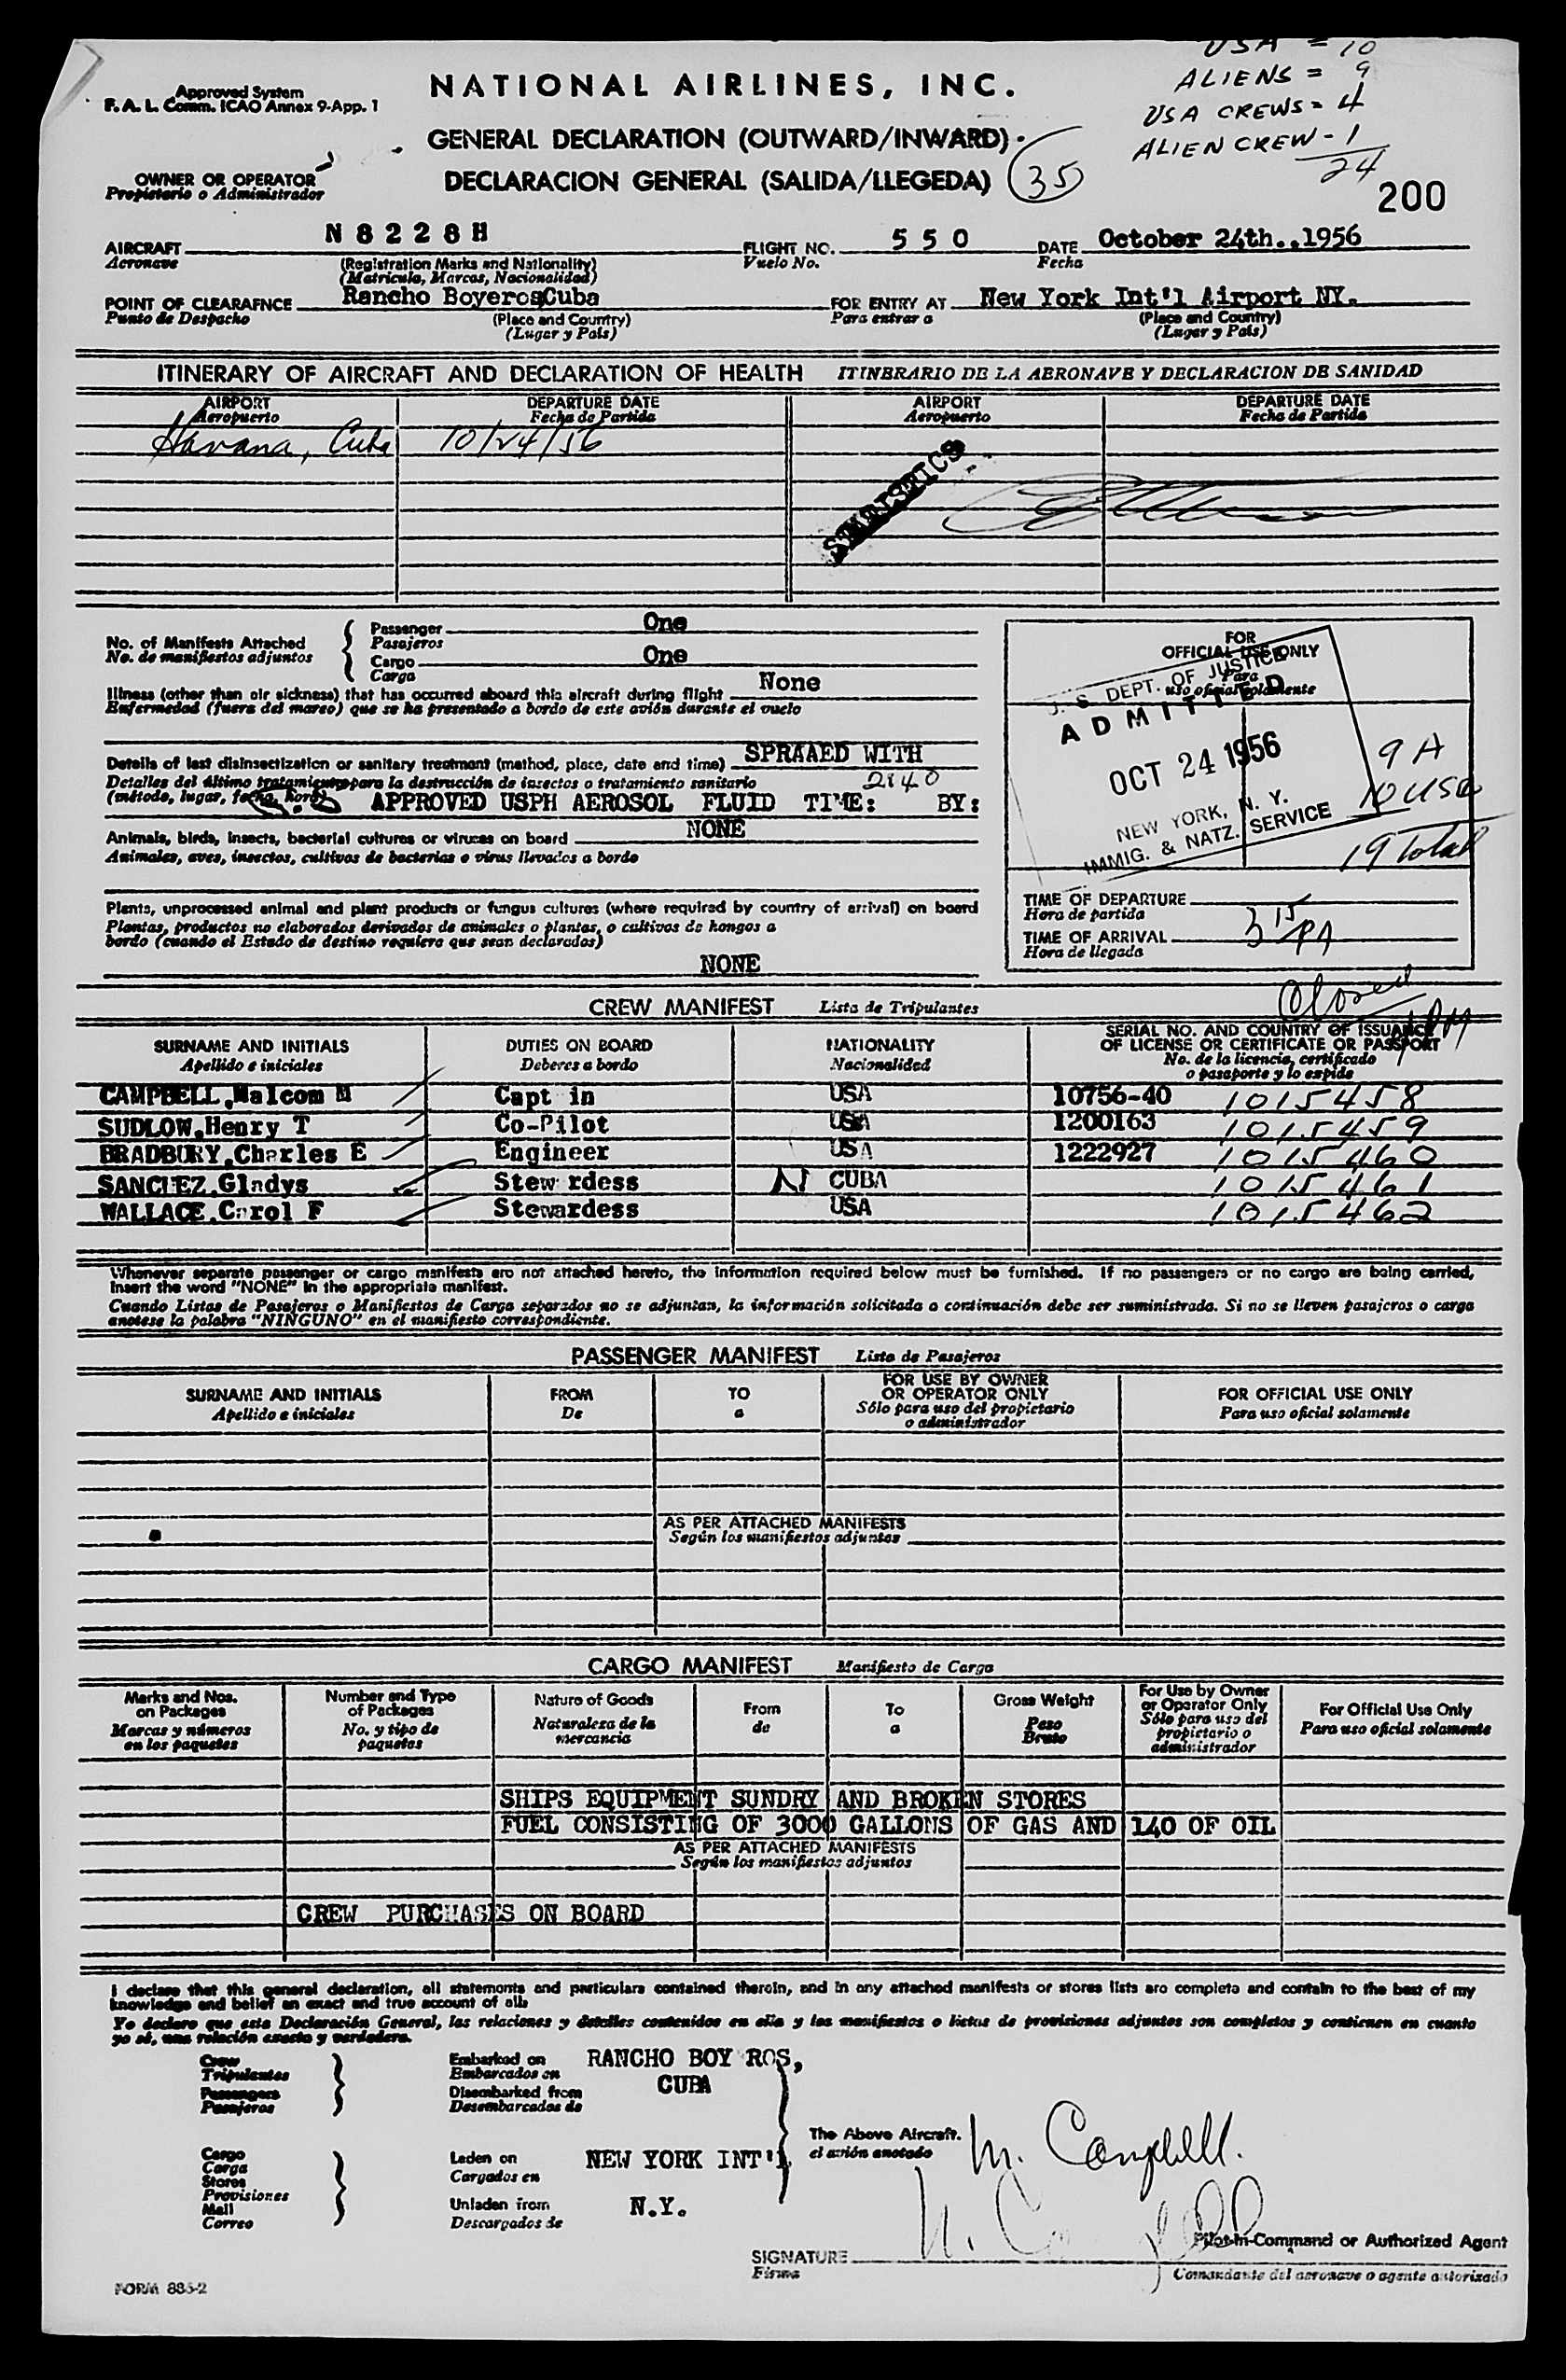 USA = 10
ALIENS = 9
USA CREWS = 4
ALIEN CREW - 1
24
Approved System
F. A. L. Comm. ICAO Annex 9-App. 1
NATIONAL AIRLINES, INC.
GENERAL DECLARATION (OUTWARD/INWARD)
DECLARACION GENERAL (SALIDA/LLEGEDA)
35
200
OWNER OR OPERATOR
Propietario o Administrador
AIRCRAFT N 8 2 2 8 H FLIGHT NO. 5 5 0 DATE October 24th.,1956
Aeronave (Registration Marks and Nationality) Vuelo No. Fecha
(Matricula, Marcas, Nacionalidad)
POINT OF CLEARAFNCE Rancho Boyeros,Cuba FOR ENTRY AT New York Int'l Airport NY.
Punto de Despacho (Place and Country) Para entrar a (Place and Country)
(Lugar y País) (Lugar y País)
ITINERARY OF AIRCRAFT AND DECLARATION OF HEALTH ITINERARIO DE LA AERONAVE Y DECLARACION DE SANIDAD
AIRPORT DEPARTURE DATE AIRPORT DEPARTURE DATE
Aeropuerto Fecha de Partida Aeropuerto Fecha de Partida
Havana, Cuba 10/24/56
STATISTICS
No. of Manifests Attached
No. de manifiestos adjuntos
Passenger One
Pasajeros
Cargo One
Carga
Illness (other than air sickness) that has occurred aboard this aircraft during flight None
Enfermedad (fuera del mareo) que se ha presentado a bordo de este avión durante el vuelo
Details of last disinsectization or sanitary treatment (method, place, date and time) SPRAAED WITH
Detalles del último tratamiento para la destrucción de insectos o tratamiento sanitario 2140
(método, lugar, fecha, hora) APPROVED USPH AEROSOL FLUID TIME: BY:
Animals, birds, insects, bacterial cultures or viruses on board NONE
Animales, aves, insectos, cultivos de bacterias o virus llevados a bordo
Plants, unprocessed animal and plant products or fungus cultures (where required by country of arrival) on board
Plantas, productos no elaborados derivados de animales o plantas, o cultivos de hongos a
bordo (cuando el Estado de destino requiera que sean declarados)
NONE
FOR
OFFICIAL USE ONLY
Para
uso oficial solamente
U. S. DEPT. OF JUSTICE
ADMITTED
OCT 24 1956
NEW YORK, N. Y.
IMMIG. & NATZ. SERVICE
9 A
10 USA
19 Total
TIME OF DEPARTURE
Hora de partida
TIME OF ARRIVAL 3 15
Hora de llegada
Closed
CREW MANIFEST Lista de Tripulantes
SURNAME AND INITIALS DUTIES ON BOARD NATIONALITY SERIAL NO. AND COUNTRY OF ISSUANCE
Apellido e iniciales Deberes a bordo Nacionalidad OF LICENSE OR CERTIFICATE OR PASSPORT
No. de la licencia, certificado
o pasaporte y lo expide
CAMPBELL,Malcom M Capt in USA 10756-40 1015458
SUDLOW,Henry T Co-Pilot USA 1200163 1015459
BRADBURY,Charles E Engineer USA 1222927 1015460
SANCHEZ,Gladys Stew rdess N CUBA 1015461
WALLACE,Carol F Stewardess USA 1015462
Whenever separate passenger or cargo manifests are not attached hereto, the information required below must be furnished. If no passengers or no cargo are being carried,
insert the word "NONE" in the appropriate manifest.
Cuando Listas de Pasajeros o Manifiestos de Carga separados no se adjuntan, la información solicitada a continuación debe ser suministrada. Si no se lleven pasajeros o carga
anotese la palabra "NINGUNO" en el manifiesto correspondiente.
PASSENGER MANIFEST Lista de Pasajeros
SURNAME AND INITIALS FROM TO FOR USE BY OWNER FOR OFFICIAL USE ONLY
Apellido e iniciales De a OR OPERATOR ONLY Para uso oficial solamente
Sólo para uso del propietario
o administrador
AS PER ATTACHED MANIFESTS
Según los manifiestos adjuntos
CARGO MANIFEST Manifiesto de Carga
Marks and Nos. Number and Type Nature of Goods From To Gross Weight For Use by Owner For Official Use Only
on Packages of Packages Naturaleza de la de a Peso or Operator Only Para uso oficial solamente
Marcas y números No. y tipo de mercancia Bruto Sólo para uso del
en los paquetes paquetes propietario o
administrador
SHIPS EQUIPMENT SUNDRY AND BROKEN STORES
FUEL CONSISTING OF 3000 GALLONS OF GAS AND 140 OF OIL
AS PER ATTACHED MANIFESTS
Según los manifiestos adjuntos
CREW PURCHASES ON BOARD
I declare that this general declaration, all statements and particulars contained therein, and in any attached manifests or stores lists are complete and contain to the best of my
knowledge and belief an exact and true account of all:
Yo declaro que esta Declaración General, las relaciones y detalles contenidos en ella y los manifiestos o listas de provisiones adjuntos son completos y contienen en cuanto
yo sé, una relación exacta y verdadera.
Crew
Tripulantes
Passengers
Pasajeros
Embarked on RANCHO BOY ROS,
Embarcados en CUBA
Disembarked from
Desembarcados de
Cargo
Carga
Stores
Provisiones
Mail
Correo
Laden on NEW YORK INT'L
Cargados en
Unladen from N.Y.
Descargados de
The Above Aircraft.
el avión anotado
M. Campbell.
M. Campbell
Pilot-in-Command or Authorized Agent
SIGNATURE
Firma Comandante del aeronave o agente autorizado
FORM 885-2